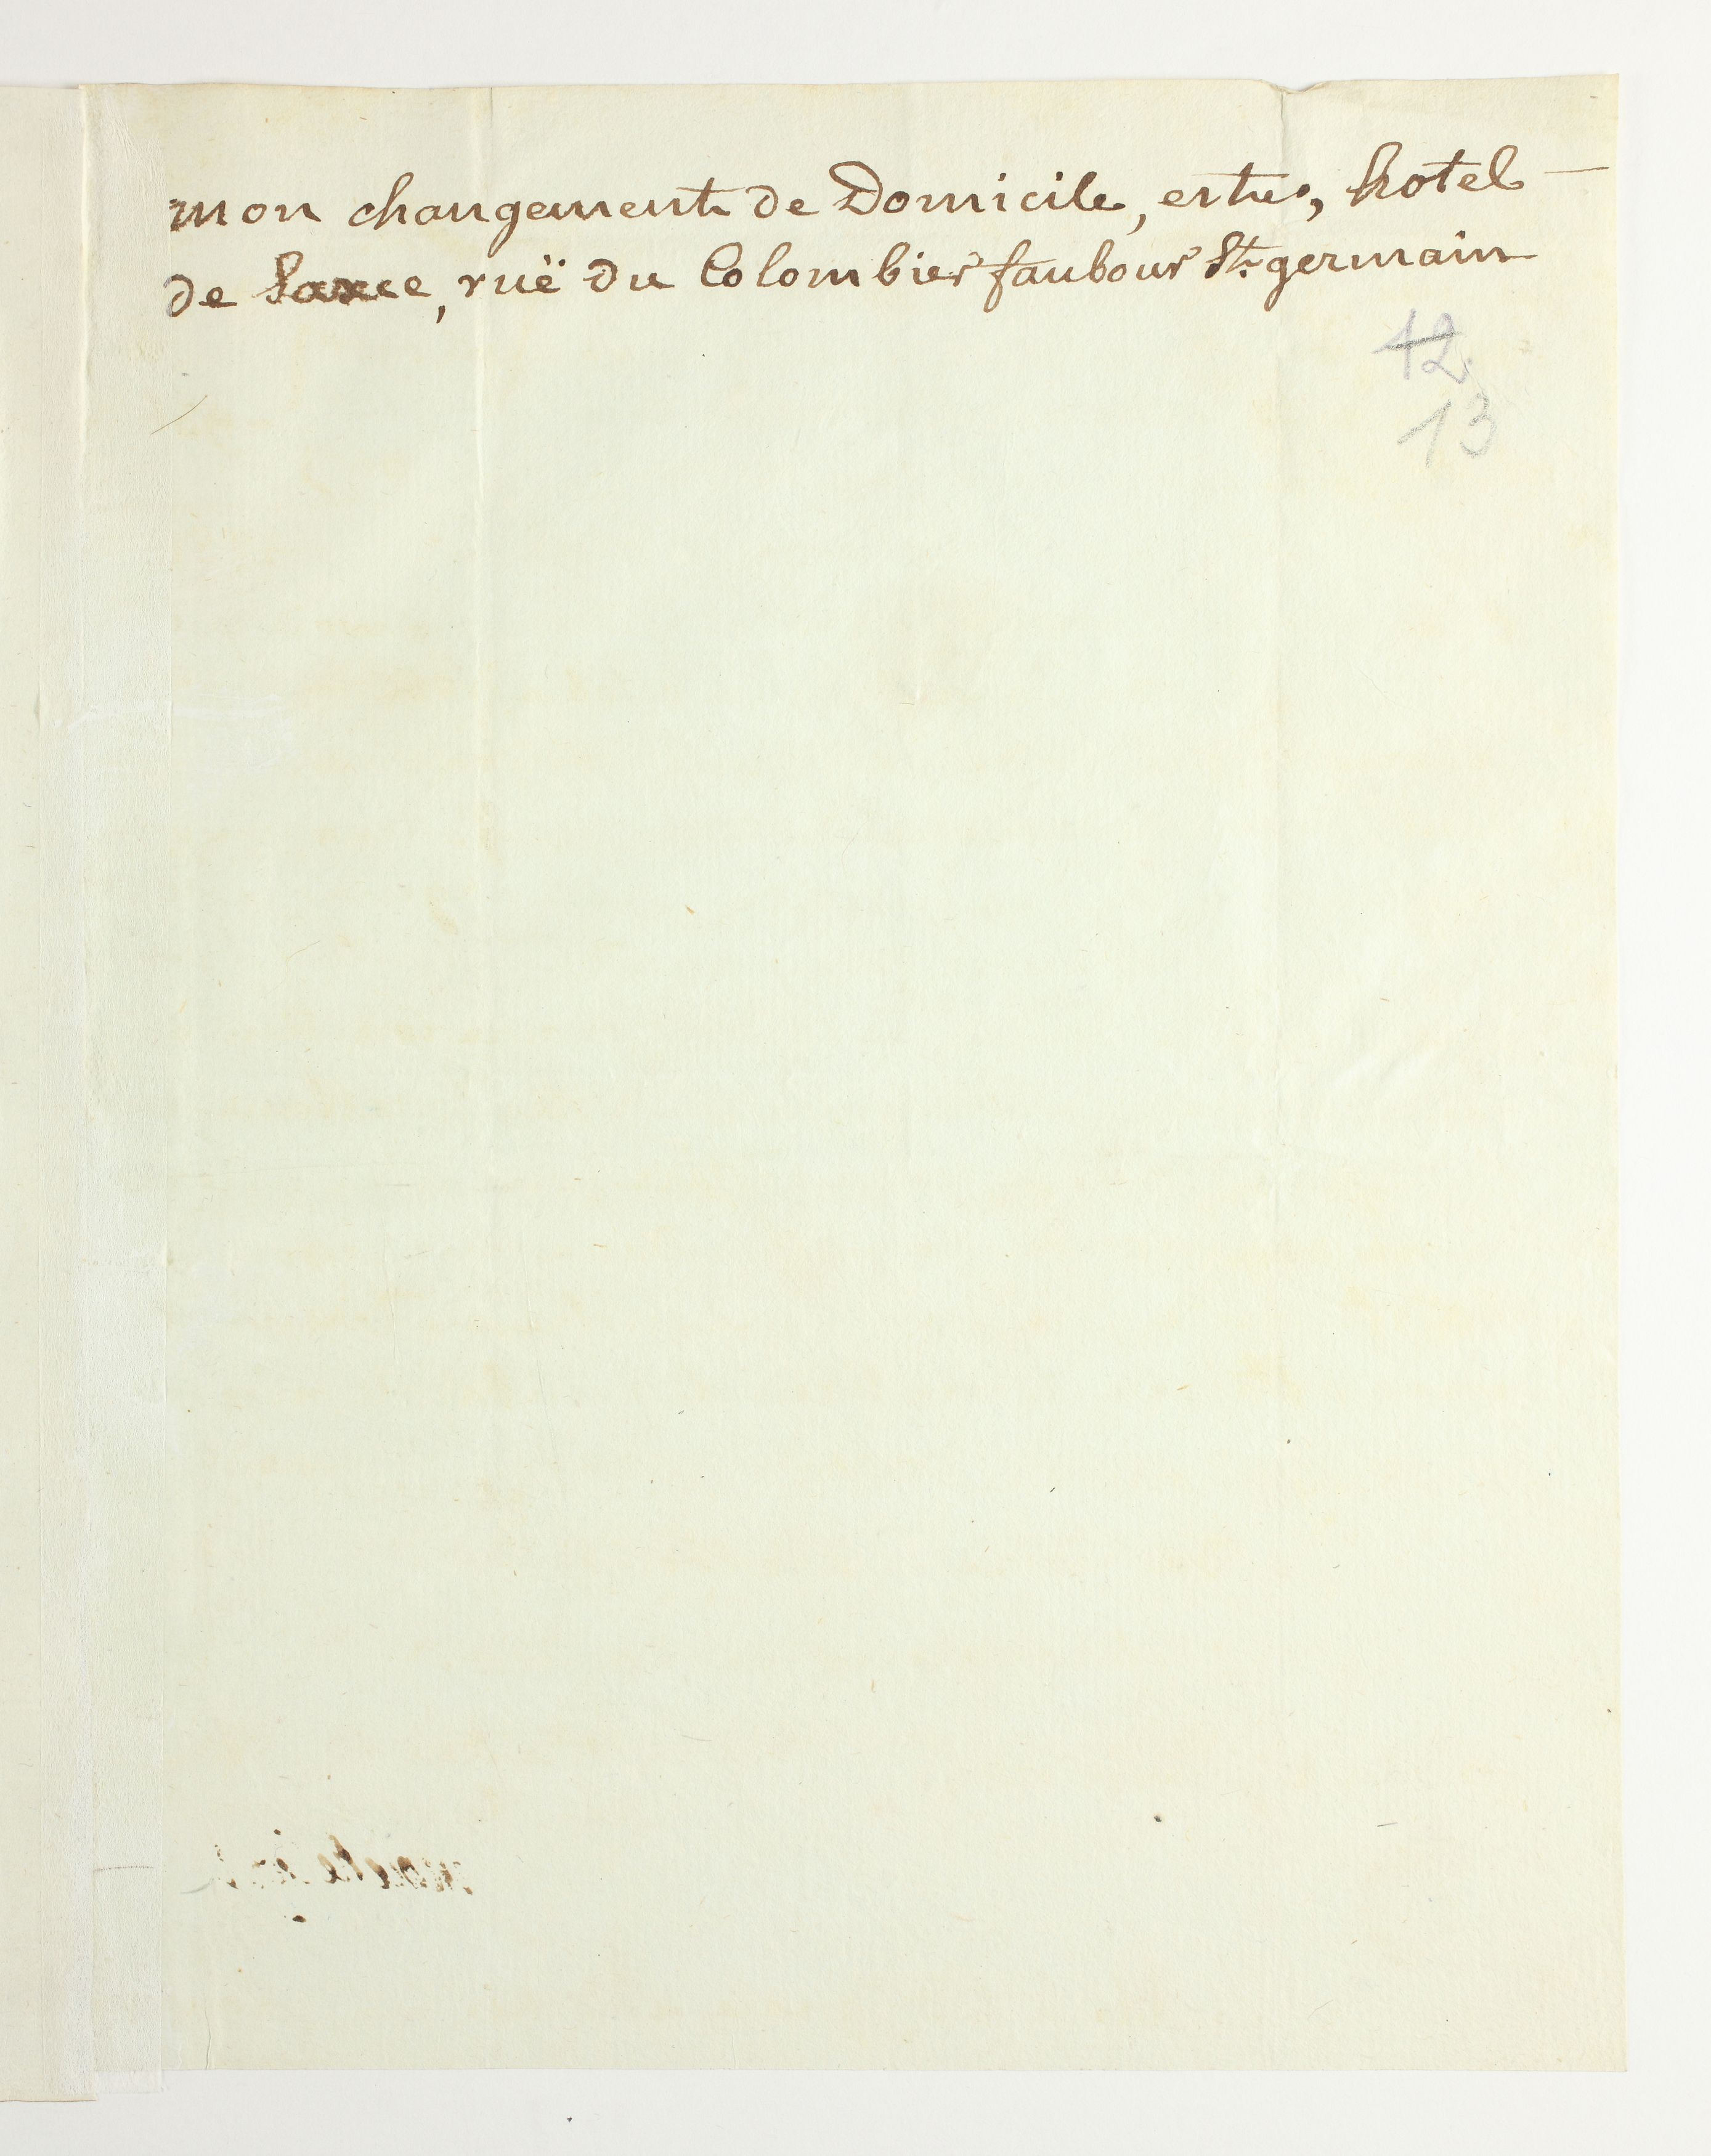 mon changement de Domicile, hotel
de Saxee, ruë du Colombier faubour St. germain
12
13